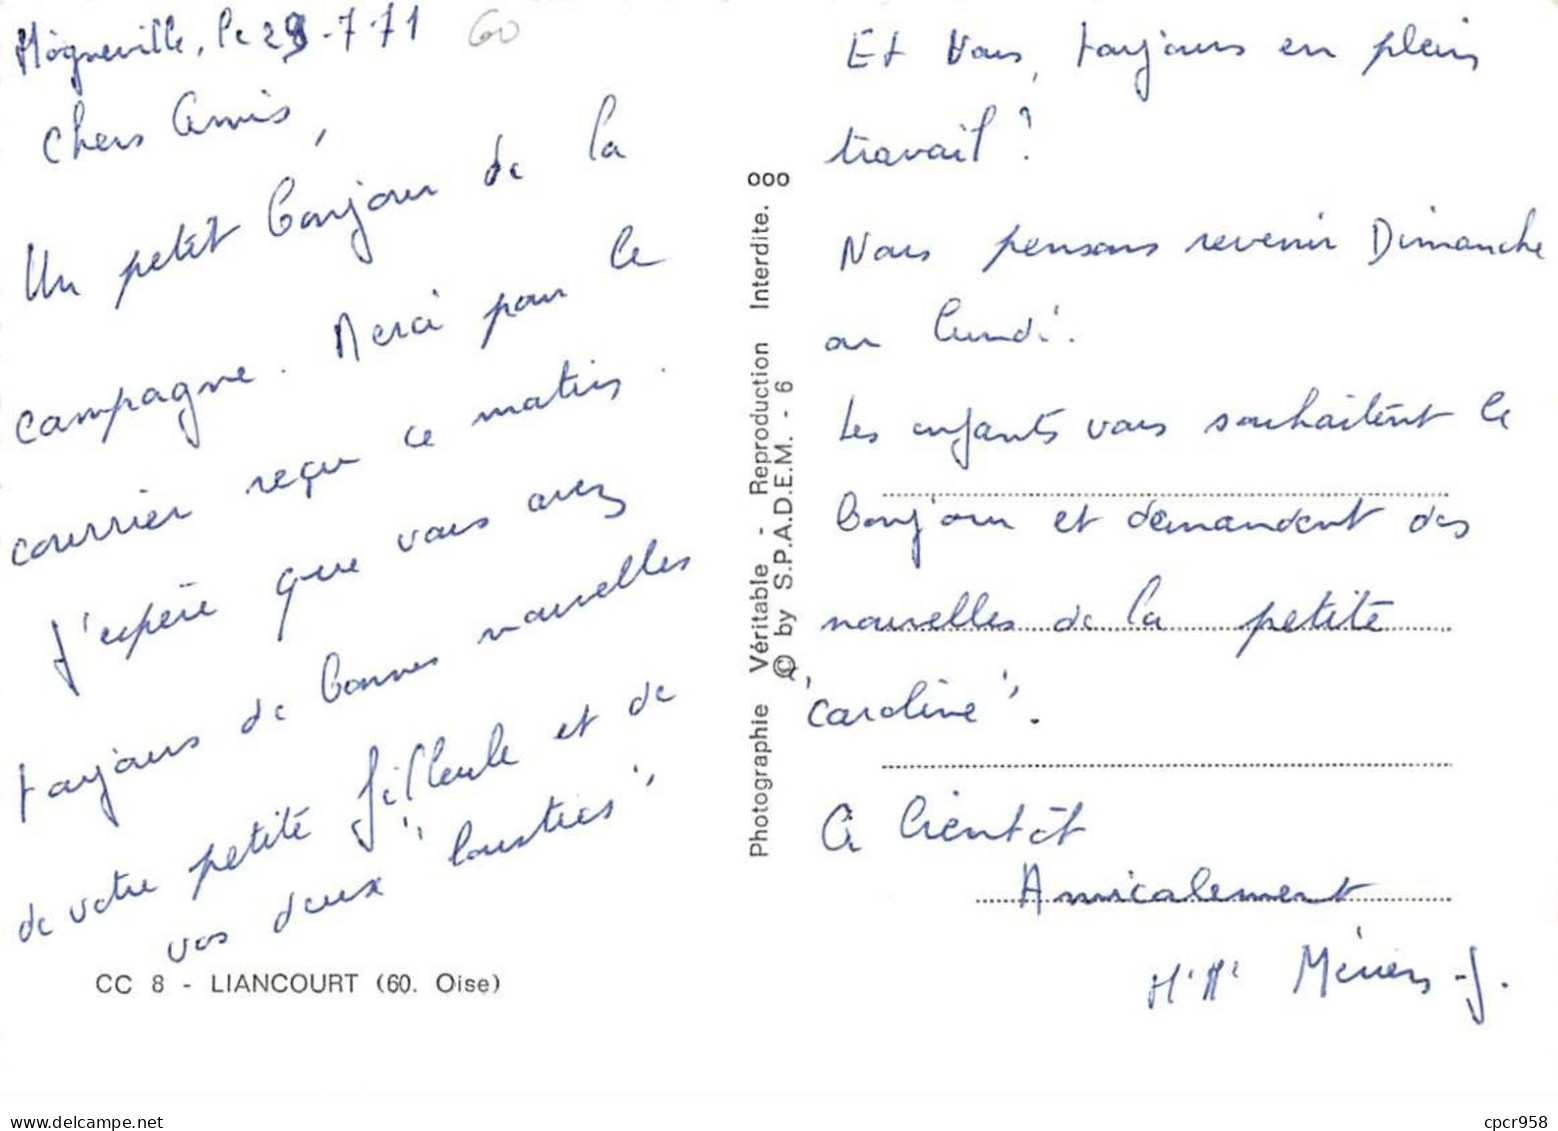 Mogneville, le 29-7-71
60
Chers Amis,
Un petit bonjour de la
campagne. Merci pour le
courrier reçu ce matin.
J'espère que vous avez
toujours de bonnes nouvelles
de votre petite filleule et de
vos deux "loustics"
CC 8 - LIANCOURT (60. Oise)
Photographie Véritable - Reproduction Interdite. ooo
© by S.P.A.D.E.M. - 6
Et Vous, toujours en plein
travail ?
Nous pensons revenir Dimanche
ou lundi.
Les enfants vous souhaitent le
bonjour et demandent des
nouvelles de la petite
"Caroline".
A bientôt
Amicalement
cpcr958
www.delcampe.net